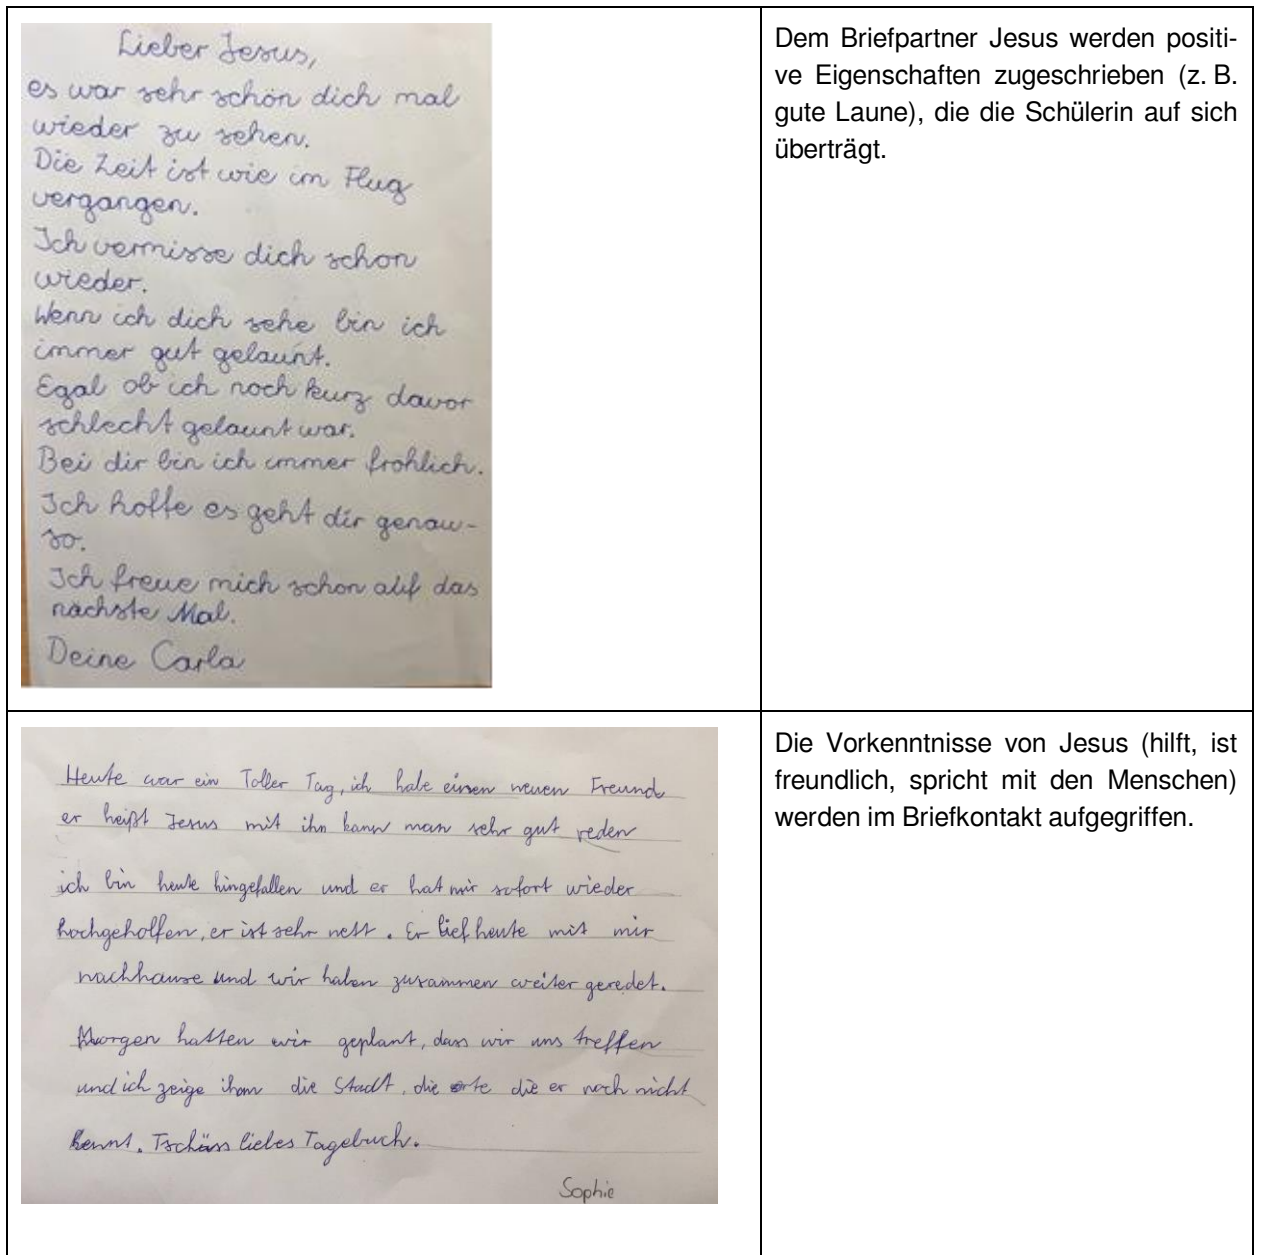 Lieber Jesus,
es war sehr schön dich mal
wieder zu sehen.
Die Zeit ist wie im Flug
vergangen.
Ich vermisse dich schon
wieder.
Wenn ich dich sehe bin ich
immer gut gelaunt.
Egal ob ich noch kurz davor
schlecht gelaunt war.
Bei dir bin ich immer fröhlich.
Ich hoffe es geht dir genau-
so.
Ich freue mich schon auf das
nächste Mal.
Deine Carla
Dem Briefpartner Jesus werden positi-
ve Eigenschaften zugeschrieben (z. B.
gute Laune), die die Schülerin auf sich
überträgt.
Heute war ein Toller Tag, ich habe einen neuen Freund
er heißt Jesus mit ihn kann man sehr gut reden
ich bin heute hingefallen und er hat mir sofort wieder
hochgeholfen, er ist sehr nett. Er lief heute mit mir
nachhause und wir haben zusammen weiter geredet.
Morgen hatten wir geplant, dass wir uns treffen
und ich zeige ihm die Stadt, die orte die er noch nicht
kennt. Tschüss liebes Tagebuch.
Sophie
Die Vorkenntnisse von Jesus (hilft, ist
freundlich, spricht mit den Menschen)
werden im Briefkontakt aufgegriffen.